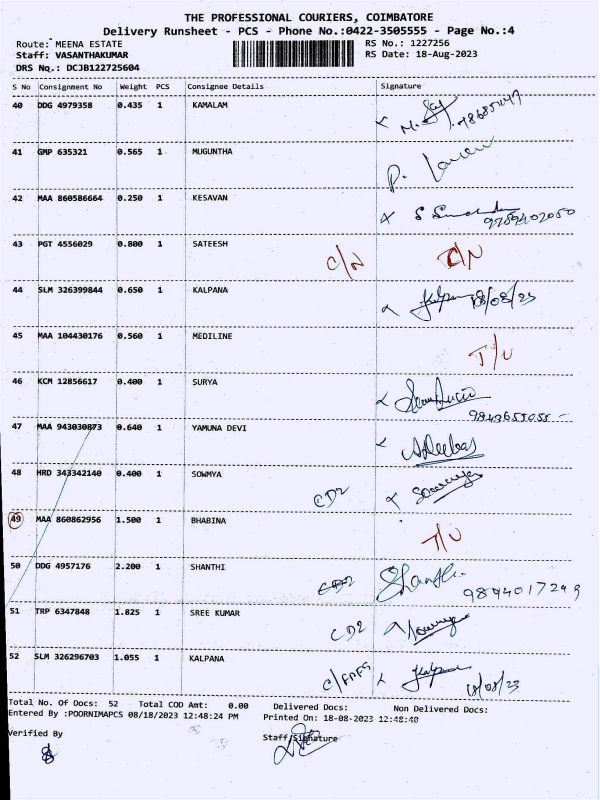 THE PROFESSIONAL COURIERS, COIMBATORE
Delivery Runsheet - PCS - Phone No.:0422-3505555 - Page No.:4
Route: MEENA ESTATE RS No.: 1227256
Staff: VASANTHAKUMAR RS Date: 18-Aug-2023
DRS No.: DCJB122725604
S No Consignment No Weight PCS Consignee Details Signature
40 DDG 4979358 0.435 1 KAMALAM
41 GMP 635321 0.565 1 MUGUNTHA
42 MAA 860586664 0.250 1 KESAVAN
9789402050
43 PGT 4556029 0.800 1 SATEESH C/N
44 SLM 326399844 0.650 1 KALPANA Kalpana 18/08/23
45 MAA 104430176 0.560 1 MEDILINE
46 KCM 12856617 0.400 1 SURYA
9843655055
47 MAA 943030873 0.640 1 YAMUNA DEVI
48 HRD 343342140 0.400 1 SOWMYA CD2 Sowmya
49 MAA 860862956 1.500 1 BHABINA
50 DDG 4957176 2.200 1 SHANTHI CD2 Shanthi 9894017249
51 TRP 6347848 1.825 1 SREE KUMAR CD2
52 SLM 326296703 1.055 1 KALPANA Kalpana 18/08/23
Total No. Of Docs: 52 Total COD Amt: 0.00 Delivered Docs: Non Delivered Docs:
Entered By :POORNIMAPCS 08/18/2023 12:48:24 PM Printed On: 18-08-2023 12:48:40
Verified By Staff Signature